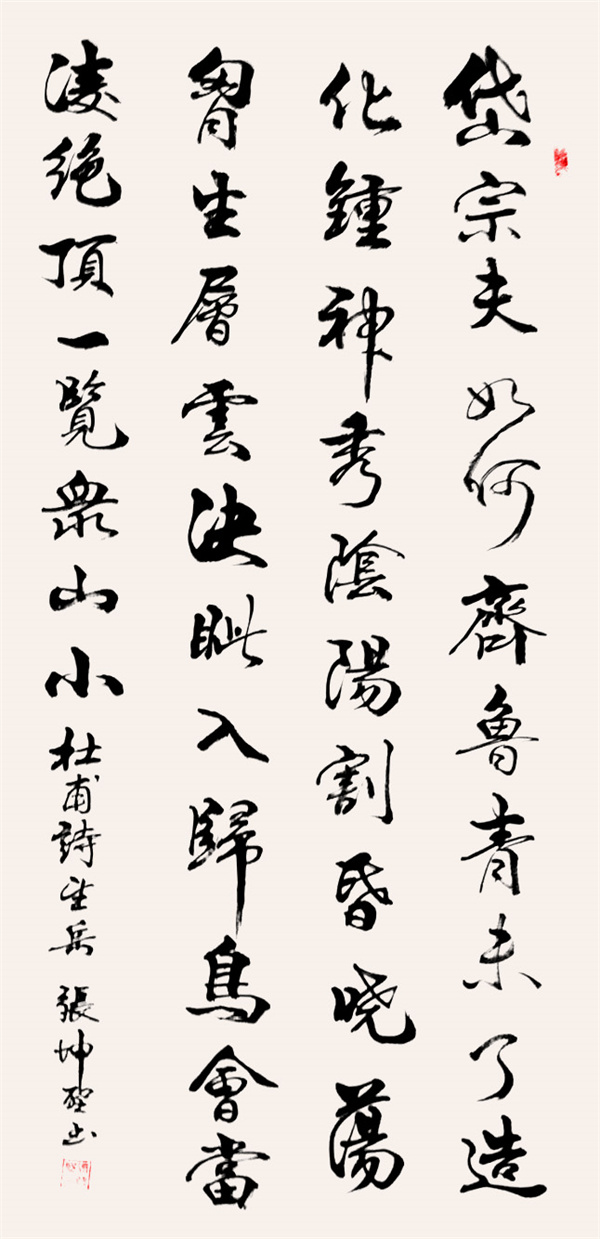 岱宗夫如何齊魯青未了造
化鍾神秀陰陽割昏晓蕩
胷生層雲決眦入歸鳥會當
凌絶頂一覽衆山小杜甫詩望岳張坤